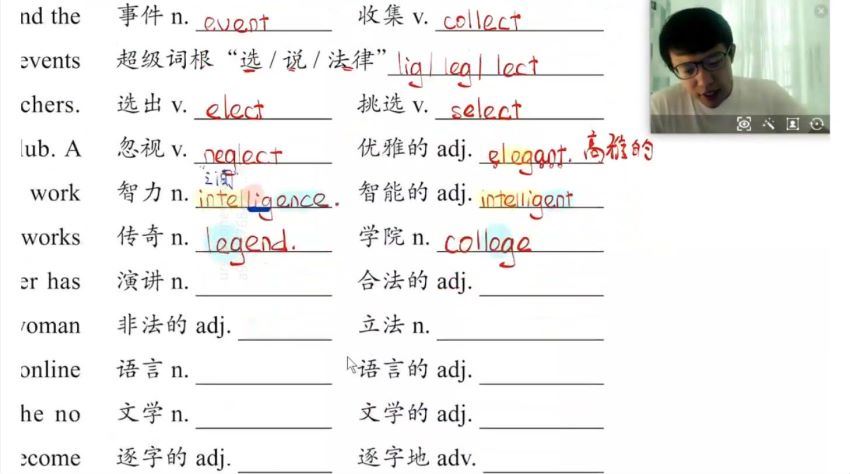 nd the 事件 n. event 收集 v. collect
events 超级词根“选/说/法律” lig/leg/lect
chers. 选出 v. elect 挑选 v. select
lub. A 忽视 v. neglect 优雅的 adj. elegant. 高雅的
之间
work 智力 n. intelligence. 智能的 adj. intelligent
works 传奇 n. legend. 学院 n. college
er has 演讲 n. 合法的 adj.
woman 非法的 adj. 立法 n.
online 语言 n. 语言的 adj.
he no 文学 n. 文学的 adj.
ecome 逐字的 adj. 逐字地 adv.